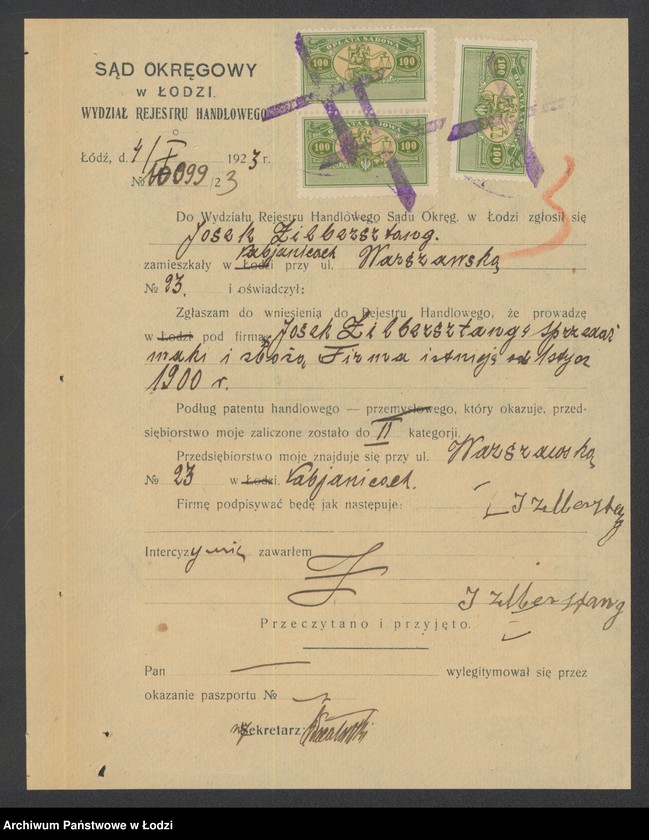 SĄD OKRĘGOWY
W ŁODZI.
WYDZIAŁ REJESTRU HANDLOWEGO
OPŁATA SĄDOWA
100 100
OPŁATA SĄDOWA
100 100
OPŁATA SĄDOWA
100 100
Łódź, d. 4/I 1923 r.
№ 10099/23
3
Do Wydziału Rejestru Handlowego Sądu Okręg. w Łodzi zgłosił się
Josek Zilbersztang.
Pabjanicach
zamieszkały w Łodzi przy ul. Warszawską
№ 23. i oświadczył:
Zgłaszam do wniesienia do Rejestru Handlowego, że prowadzę
w Łodzi pod firmą: „Josek Zilbersztang" sprzedaż
mąki i zboża, Firma istnieje od 1 stycz
1900 r.
Podług patentu handlowego — przemysłowego, który okazuje, przed-
siębiorstwo moje zaliczone zostało do II kategorji.
Przedsiębiorstwo moje znajduje się przy ul. Warszawską
№ 23 w Łodzi. Pabjanicach.
Firmę podpisywać będę jak następuje: J Zylberstang
Intercyzy nie zawarłem
J Zylberstang
Przeczytano i przyjęto.
Pan wylegitymował się przez
okazanie paszportu №
Sekretarz:
Archiwum Państwowe w Łodzi